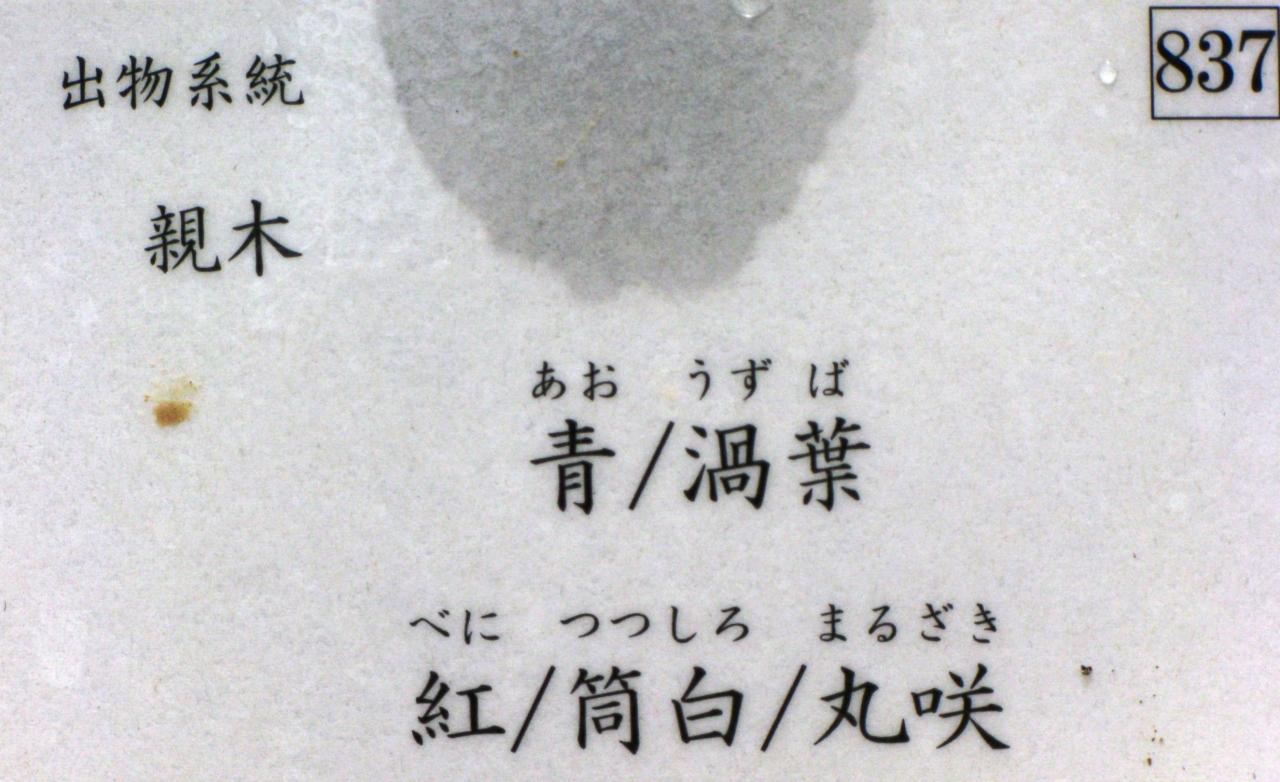 837
出物系統
親木
あお うず ば
青/渦葉
べに つつしろ まるざき
紅/筒白/丸咲